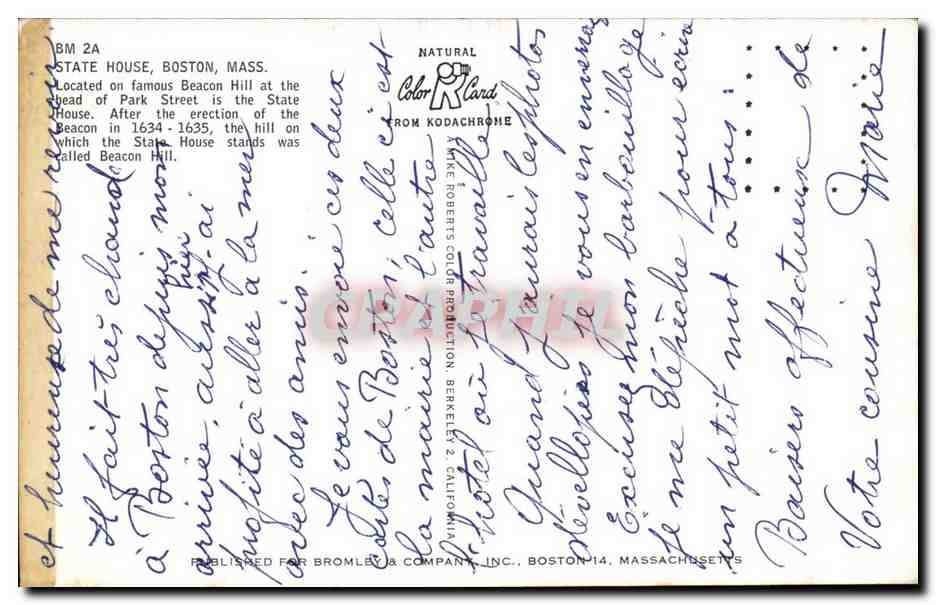 BM 2A
STATE HOUSE, BOSTON, MASS.
Located on famous Beacon Hill at the
head of Park Street is the State
House. After the erection of the
Beacon in 1634 - 1635, the hill on
which the State House stands was
called Beacon Hill.
NATURAL
Color Card
FROM KODACHROME
A MIKE ROBERTS COLOR PRODUCTION, BERKELEY 2, CALIFORNIA
PUBLISHED FOR BROMLEY & COMPANY, INC., BOSTON 14, MASSACHUSETTS
et heureuse de me revoir.
Il fait très chaud
à Boston depuis mon
arrivée, aussi hier j'ai
profité à aller à la mer
avec des amis
Je vous envoie ces deux
cartes de Boston, celle ci est
la mairie et l'autre
l'hotel où je travaille
Quand j'aurais les photos
développées je vous en enverrai
Excusez mon barbouillage
je me dépêche pour écrire
un petit mot à tous
Baisers affectueux de
Votre cousine Marie
CPAPHIL